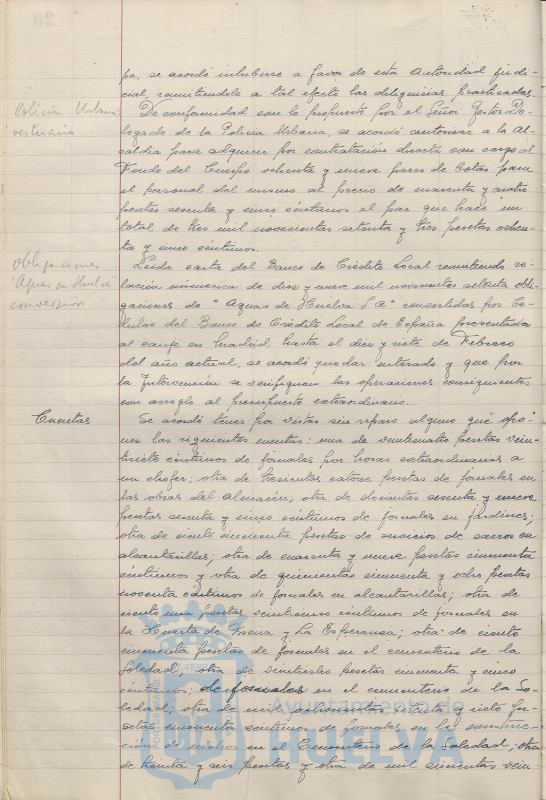 pa, se acordó inhibirse a favor de esta Autoridad judi-
cial, remitiendole a tal efecto las diligencias practicadas.
Policia Urbana
vestuario
De conformidad con lo propuesto por el Señor Gestor De-
legado de la Policia Urbana, se acordó autorizar a la Al-
caldia para adquirir por contratación directa con cargo al
Fondo del Cuerpo ochenta y nueve pares de botas para
el personal del mismo al precio de cuarenta y cuatro
pesetas sesenta y cinco céntimos el par que hace un
total de tres mil novecientas setenta y tres pesetas ochen-
ta y cinco céntimos.
Obligaciones
"Aguas de Huelva"
conversion
Leida carta del Banco de Crédito Local remitiendo re-
lación númerica de diez y nueve mil novecientas setenta obli-
gaciones de "Aguas de Huelva S.A" convertidas por Ce-
dulas del Banco de Crédito Local de España presentada
al canje en Madrid hasta el diez y siete de Febrero
del año actual, se acordó quedar enterado y que por
la Intervencion se verifiquen las operaciones consiguientes
con arreglo al presupuesto extraordinario.
Cuentas
Se acordó tener por vistas sin reparo alguno que opo-
ner las siguientes cuentas: una de veinticuatro pesetas vein-
tisiete céntimos de jornales por horas extraordinarias a
un chofer; otra de trescientas catorce pesetas de jornales en
las obras del almacén, otra de doscientas sesenta y nueve
pesetas sesenta y cinco céntimos de jornales en jardines;
otra de ciento cincuenta pesetas de servicios de carros en
alcantarillas; otra de cuarenta y nueve pesetas cincuenta
céntimos y otra de quinientas cincuenta y ocho pesetas
noventa céntimos de jornales en alcantarillas; otra de
ciento una pesetas veinticinco céntimos de jornales en
la Huerta de Mena y La Esperanza; otra de ciento
cincuenta pesetas de jornales en el cementerio de la
Soledad, otra de veintiseis pesetas cincuenta y cinco
céntimos; de jornales en el cementerio de la So-
ledad; otra de mil ochocientas setenta y siete pe-
setas cincuenta céntimos de jornales en la construc-
cion de nichos en el Cementerio de la Soledad; otra
de treinta y seis pesetas y otra de mil quinientas vein-
Ayuntamiento de
HUELVA